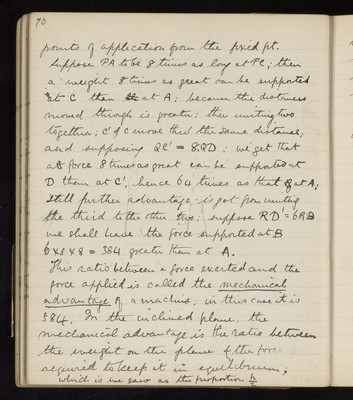 70
points of application from the fixed pt.
Suppose PA to be 8 times as long at PC; then
a weight 8 times as great can be supported
at C than at A: because the distances
moved through is greater: then uniting two
together; C & C move thro' the same distance,
and supposing QC' = 8.QD; we get that
a force 8 times as great can be supported at
D than at C', hence 64 times as that at A;
Still further advantage is got from uniting
the third to the other two; suppose RD' = 6RB
we shall have the force supported at B
6x8x8 = 384 greater than at A.
This ratio between a force exerted and the
force applied is called the mechanical
advantage of a machine; in this case it is
384. In the inclined plane, the
mechanical advantage is the ratio between
the weight on the plane & the force
required to keep it in equilibrium;
which is we saw as the proportion